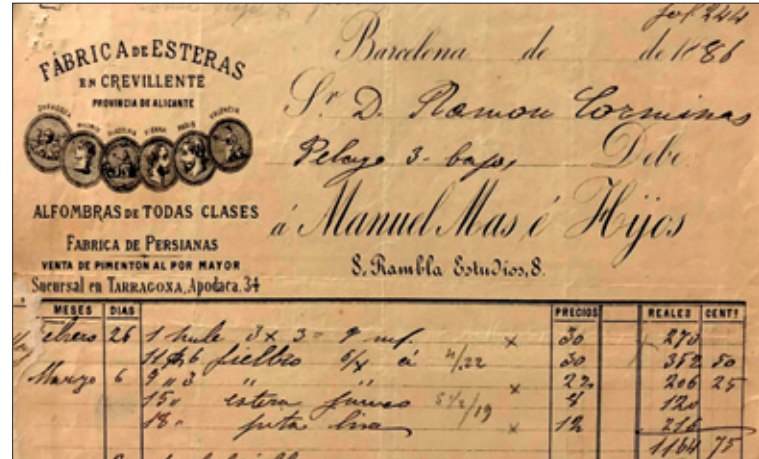 fol 244
FÁBRICA DE ESTERAS
EN CREVILLENTE
PROVINCIA DE ALICANTE
ZARAGOZA MADRID BARCELONA VIENNA PARIS VALENCIA
ALFOMBRAS DE TODAS CLASES
FABRICA DE PERSIANAS
VENTA DE PIMENTON AL POR MAYOR
Sucursal en TARRAGONA, Apodaca. 34
Barcelona de de 1886
Sr. D. Ramon Corminas
Pelayo 3 - bajo, Debe
á Manuel Mas é Hijos
8, Rambla Estudios, 8.
MESES DIAS PRECIOS REALES CENTS
Febrero 26 1 hule 3 x 3 = 9 x 30 270
11 fieltro á 11/22 30 352 50
Marzo 6 9 " 3 " " x 22 206 25
15 " estera 8 120
18 " x 12 216
1164 75